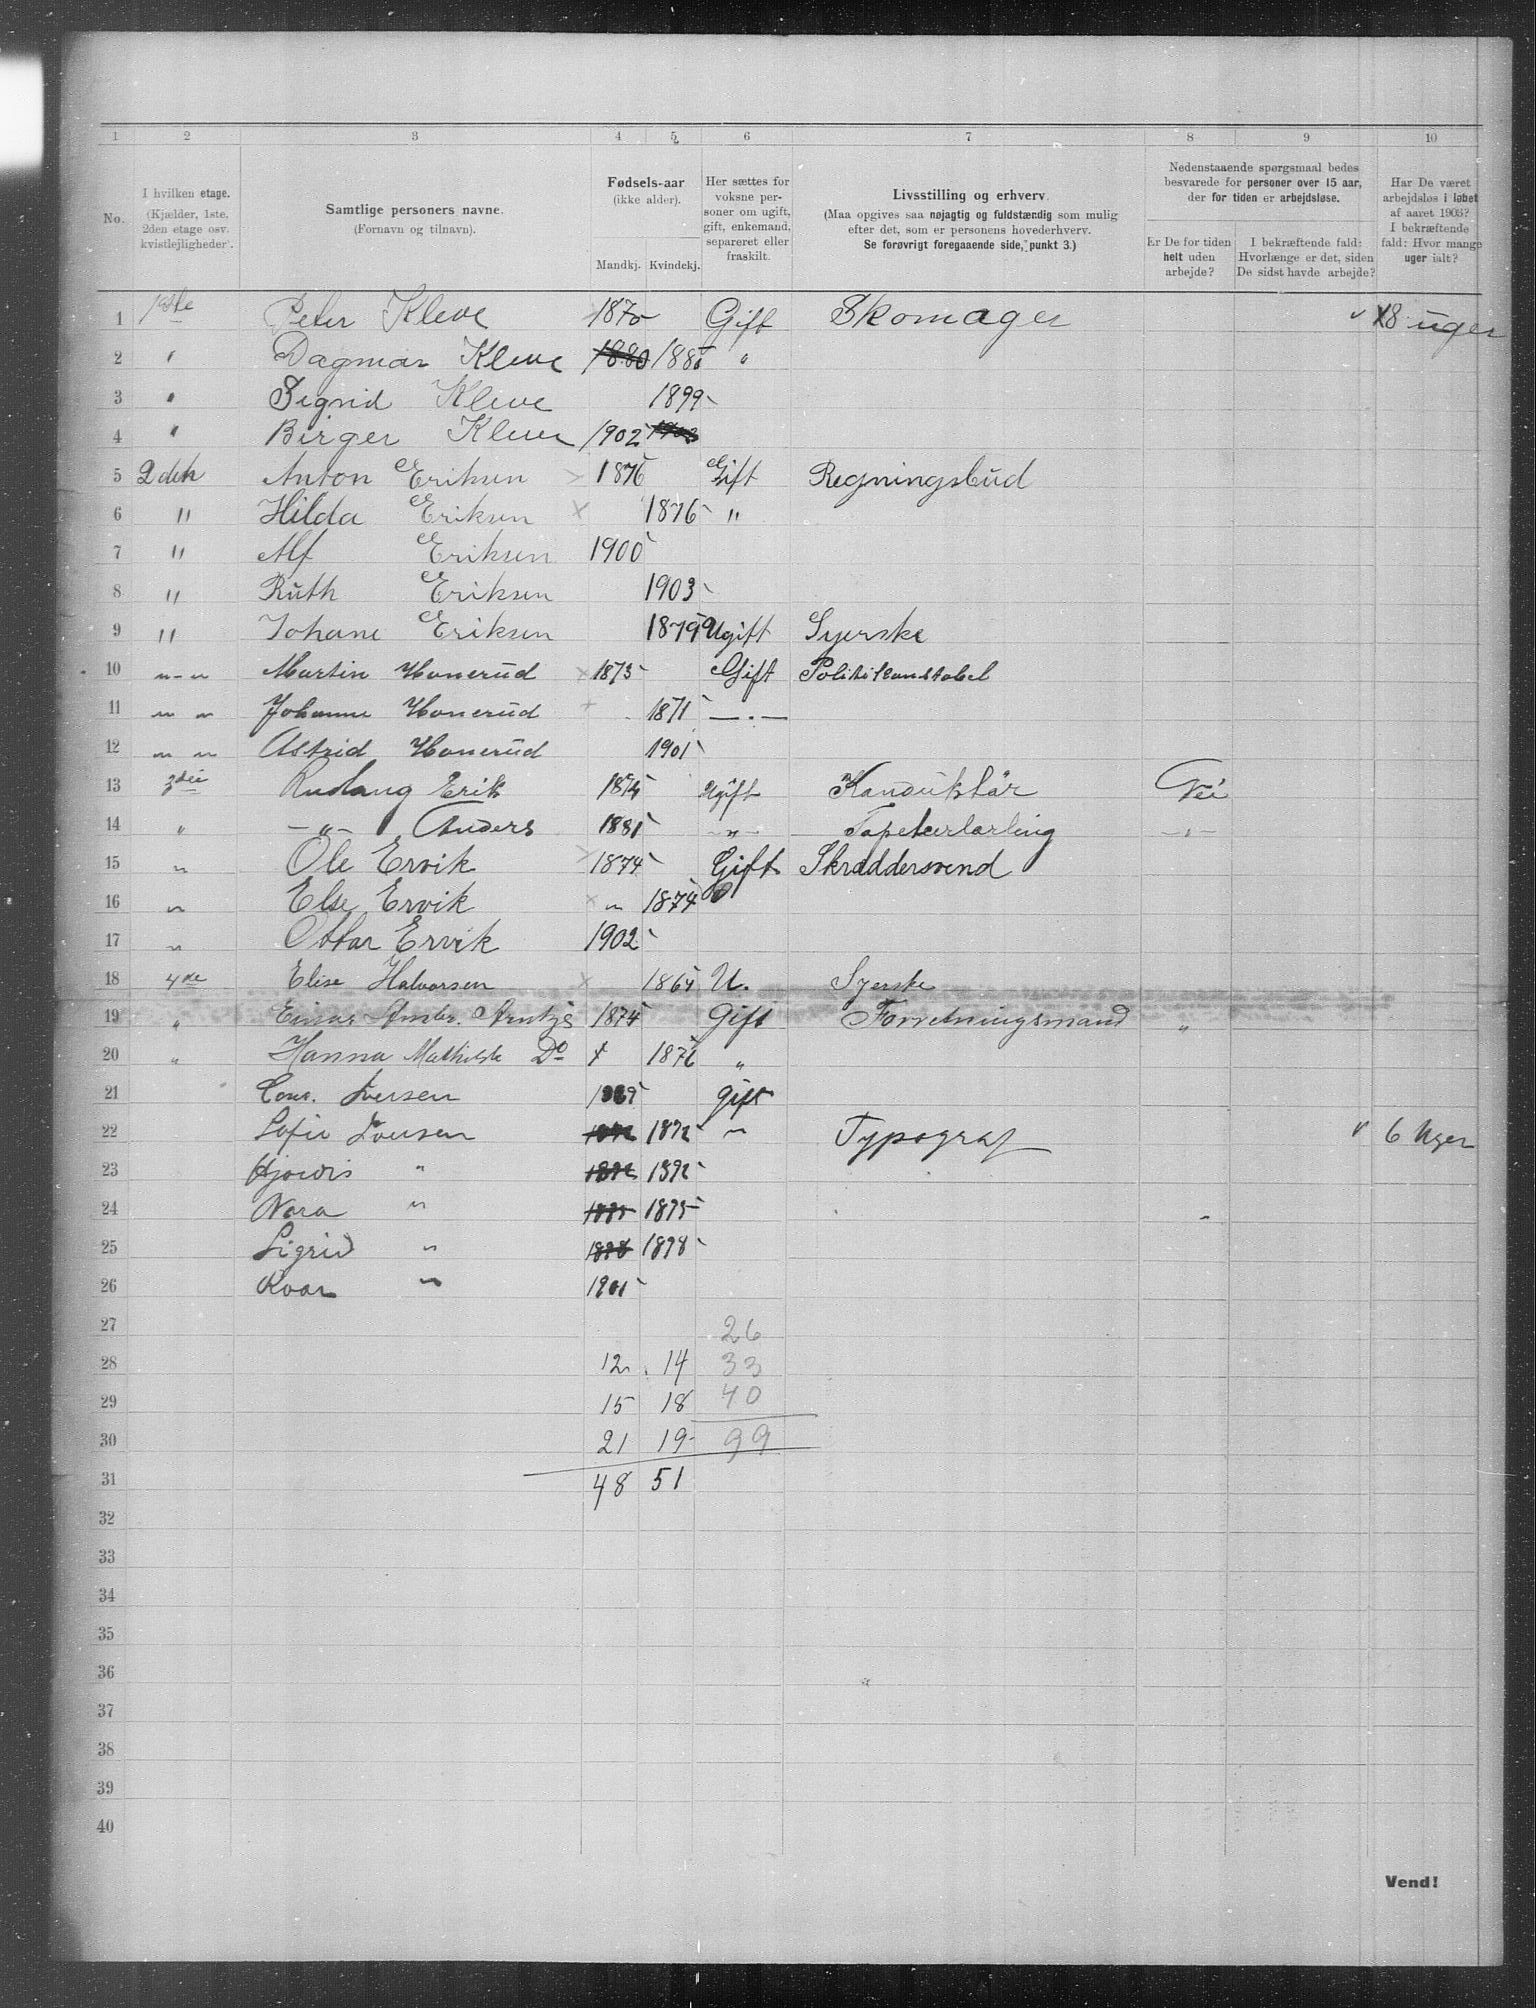 1 2 3 4 5 6 7 8 9 10
No.
I hvilken etage.
(Kjælder, 1ste, 2den etage osv. kvistlejligheder).
Samtlige personers navne.
(Fornavn og tilnavn).
Fødsels-aar
(ikke alder).
Mandkj. Kvindekj.
Her sættes for voksne personer om ugift, gift, enkemand, separeret eller fraskilt.
Livsstilling og erhverv.
(Maa opgives saa nøjagtig og fuldstændig som mulig efter det, som er personens hovederhverv.
Se forøvrigt foregaaende side, punkt 3.)
Nedenstaaende spørgsmaal bedes besvarede for personer over 15 aar, der for tiden er arbejdsløse.
Er De for tiden helt uden arbejde?
I bekræftende fald: Hvorlænge er det, siden De sidst havde arbejde?
Har De været arbejdsløs i løbet af aaret 1903?
I bekræftende fald: Hvor mange uger ialt?
1 1ste Peter Kleve 1870 Gift Skomager 18 uger
2 " Dagmar Kleve 1880 188 "
3 " Sigrid Kleve 1899
4 " Birger Kleve 1902 1902
5 2den Anton Eriksen 1876 Gift Regningsbud
6 " Hilda Eriksen × 1876 "
7 " Alf Eriksen 1900
8 " Ruth Eriksen 1903
9 " Johane Eriksen 1879 Ugift Syerske
10 " - " Martin Honerud × 1873 Gift Politikonstabel
11 " " Johanne Honerud + 1871 — " —
12 " " Astrid Honerud 1901
13 3die Erik 1874 Ugift Konduktør Nei
14 " — " — Anders 1881 — " — Tapetserlærling — " —
15 " Ole Ervik 1874 Gift Skræddersvend
16 " Else Ervik × " 1874
17 " Ottar Ervik 1902
18 4de Elise Halvorsen × 1864 U. Syerske
19 " Einar 1874 Gift Forretningsmand "
20 " Hanna Mathilde Do × 1876 "
21 Iversen 1869 gift
22 Sofie Iversen 1872 " Typograf 6 Uger
23 Hjørdis " 1892 1892
24 Nora " 1895 1895
25 Sigrid " 1898 1898
26 Roar " 1901
27 26
28 12 14 33
29 15 18 40
30 21 19 99
31 48 51
32
33
34
35
36
37
38
39
40
Vend!